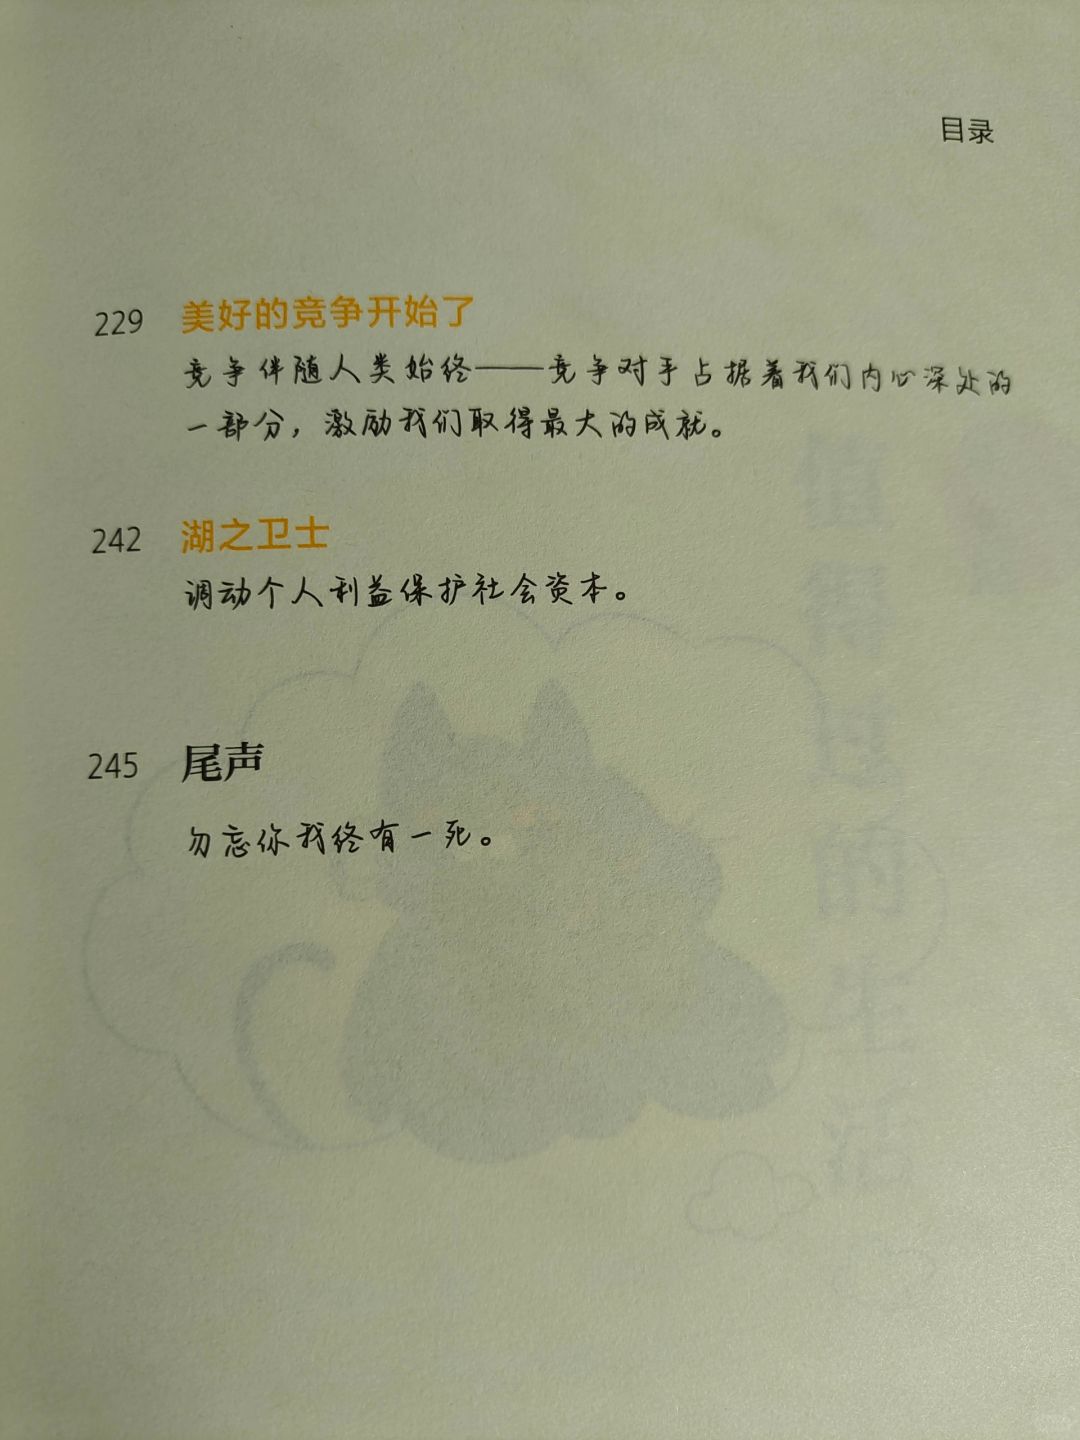 目录
229 美好的竞争开始了
竞争伴随人类始终——竞争对手占据着我们内心深处的
一部分，激励我们取得最大的成就。
242 湖之卫士
调动个人利益保护社会资本。
245 尾声
勿忘你我终有一死。